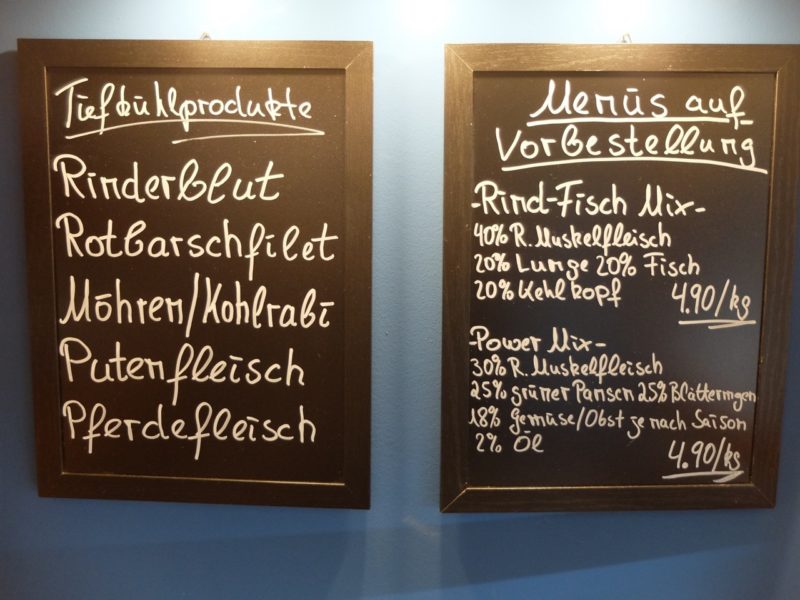 Tiefkühlprodukte
Rinderblut
Rotbarschfilet
Möhren/Kohlrabi
Putenfleisch
Pferdefleisch
Menüs auf
Vorbestellung
-Rind-Fisch Mix-
40% R. Muskelfleisch
20% Lunge 20% Fisch
20% Kehlkopf 4.90/kg
-Power Mix-
30% R. Muskelfleisch
25% grüner Pansen 25% Blättermagen
18% Gemüse/Obst je nach Saison
2% Öl
4.90/kg